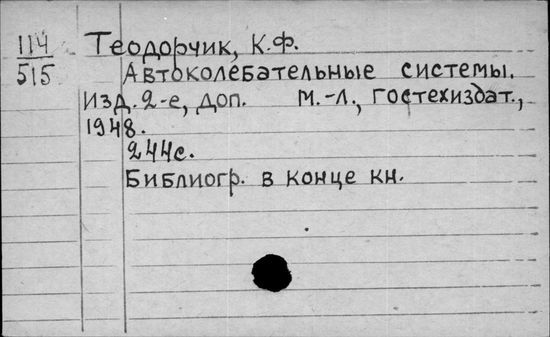 114 Теодорчик, К.Ф.
515 Автоколебательные системы.
Изд. 2-е, доп. М.-Л., Гостехиздат.,
1948.
244с.
Библиогр. в конце кн.